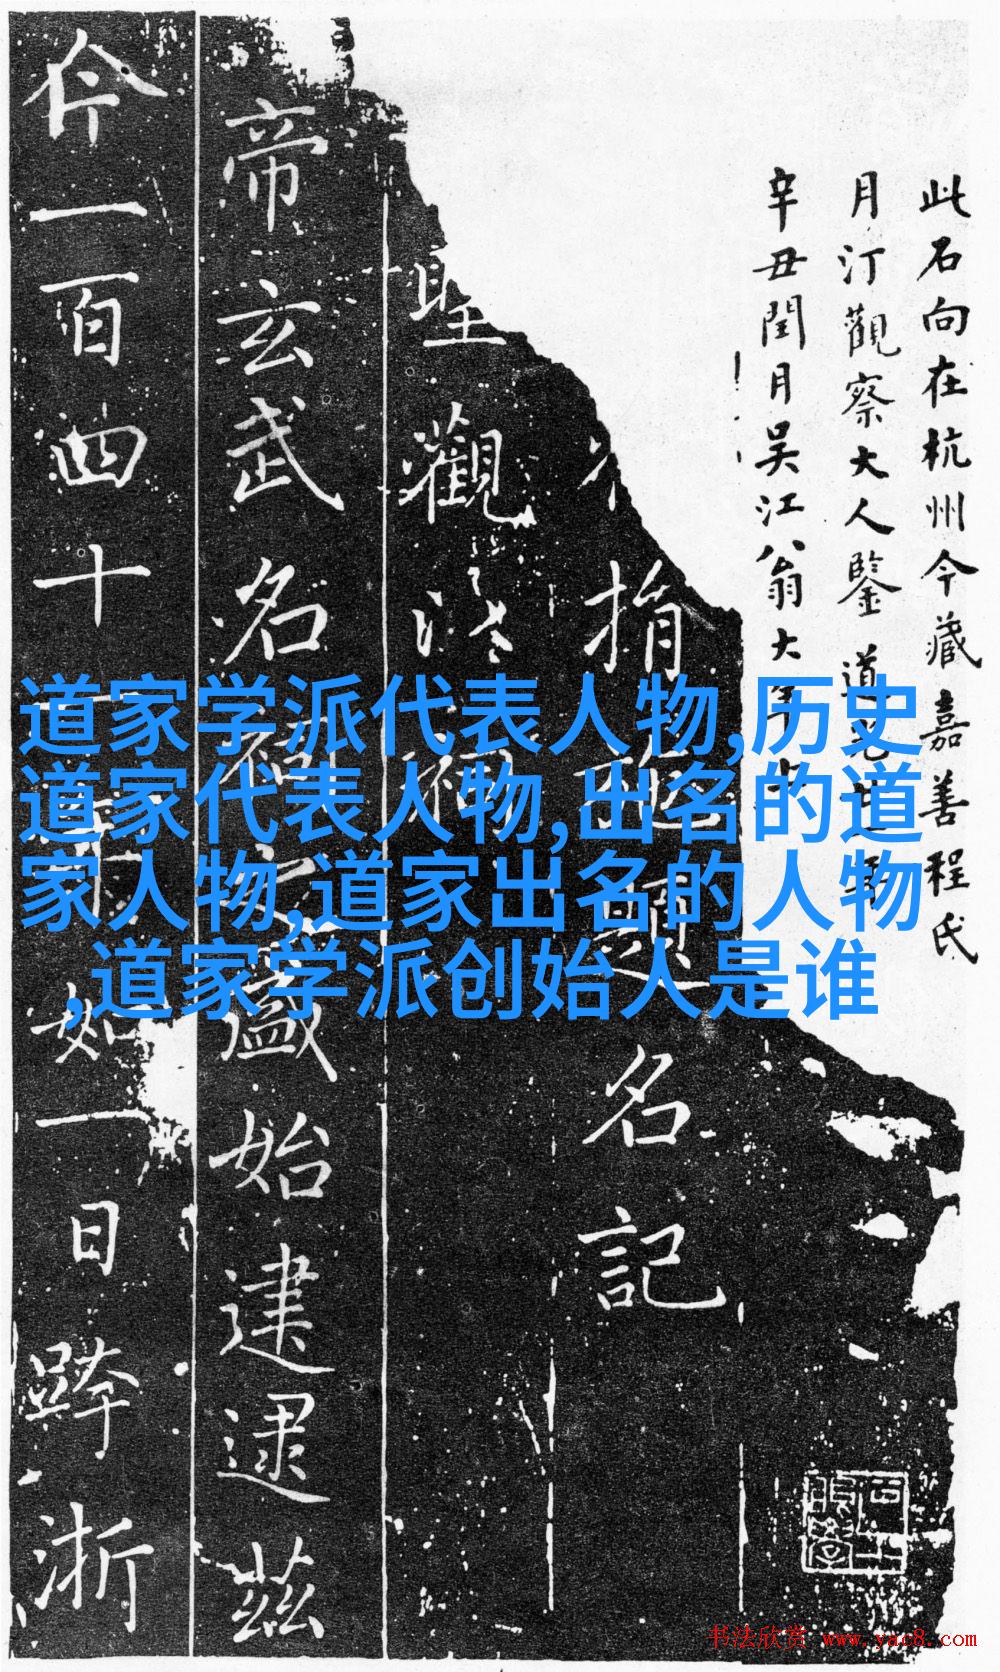 此石向在杭州今藏嘉善程氏
月汀觀察大人鑒 道
辛丑閏月吴江翁大年
指題名記
聖觀
帝玄武名祠之盛始建逮茲
今一百四十如一日蹕浙
道家学派代表人物,历史
道家代表人物,出名的道
家人物,道家出名的人物
,道家学派创始人是谁
书法欣赏 www.yac8.com